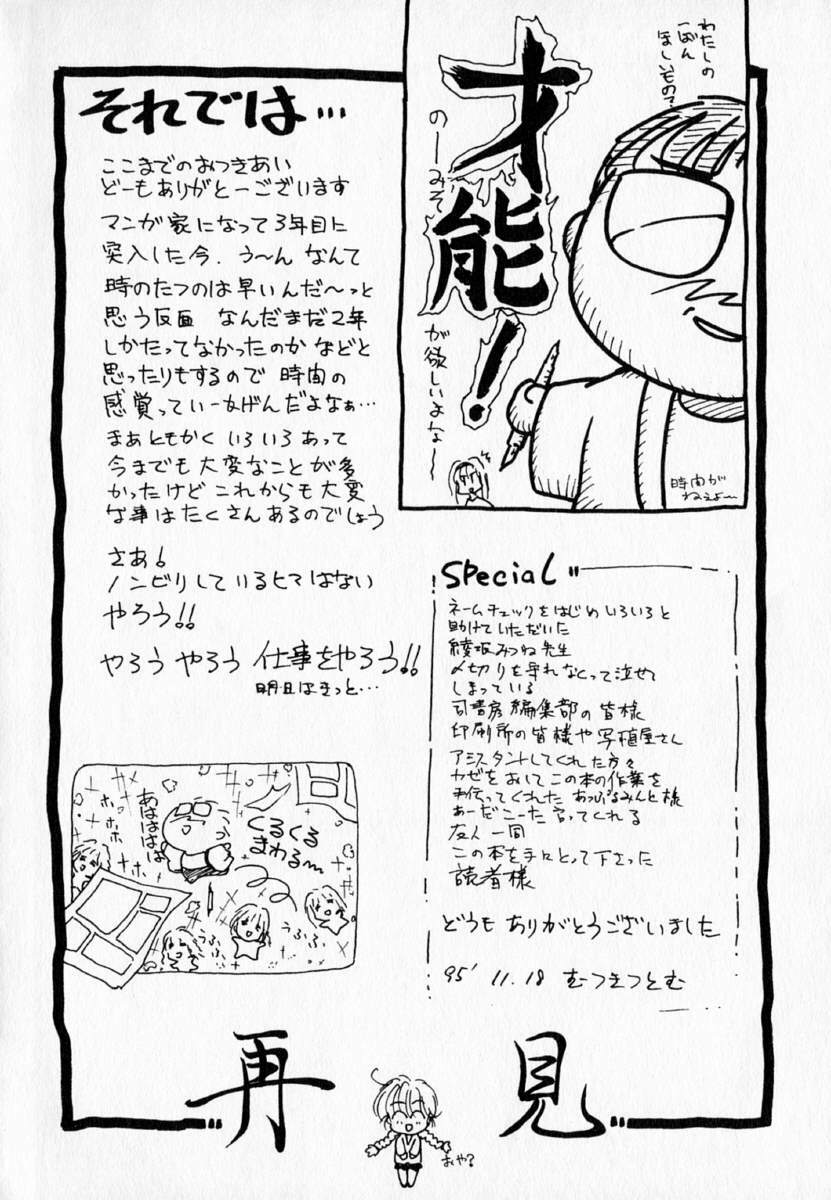 わたしの
一ばん
ほしいもの?
才能!
のーみそ
が欲しいよな～
時間が
ねぇよ～
それでは…
ここまでのおつきあい
どーもありがとーございます
マンガ家になって3年目に
突入した今、う～ん なんて
時のたつのは早いんだ～っと
思う反面 なんだまだ2年
しかたってなかったのか などと
思ったりもするので 時間の
感覚っていー
まぁともかく いろいろあって
今までも大変なことが多
かったけど これからも大変
な事はたくさんあるのでしょう
さあ!
ノンビリしているヒマはない
やろう!!
やろう やろう 仕事をやろう!!
明日はきっと…
Special
ネームチェックをはじめ いろいろと
助けていただいた
綾坂みつね先生
〆切りを守れなくって泣せて
しまっている
司書房編集部の皆様
印刷所の皆様や写植屋さん
アシスタントしてくれた方々
カゼをおいてこの本の作業を
手伝ってくれた あっぷるみんと様
あーだこーだ言ってくれる
友人一同
この本を手にとって下さった
読者様
どうもありがとうございました
95' 11.18 むつきつとむ
あははははは
ホホホ
ホホ
くるくる
まわる～
うふふ
うふふ
再見
おや?